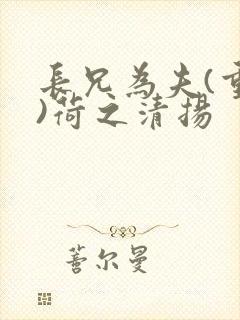 長兄為夫(重
)荷之清揚
善尔曼